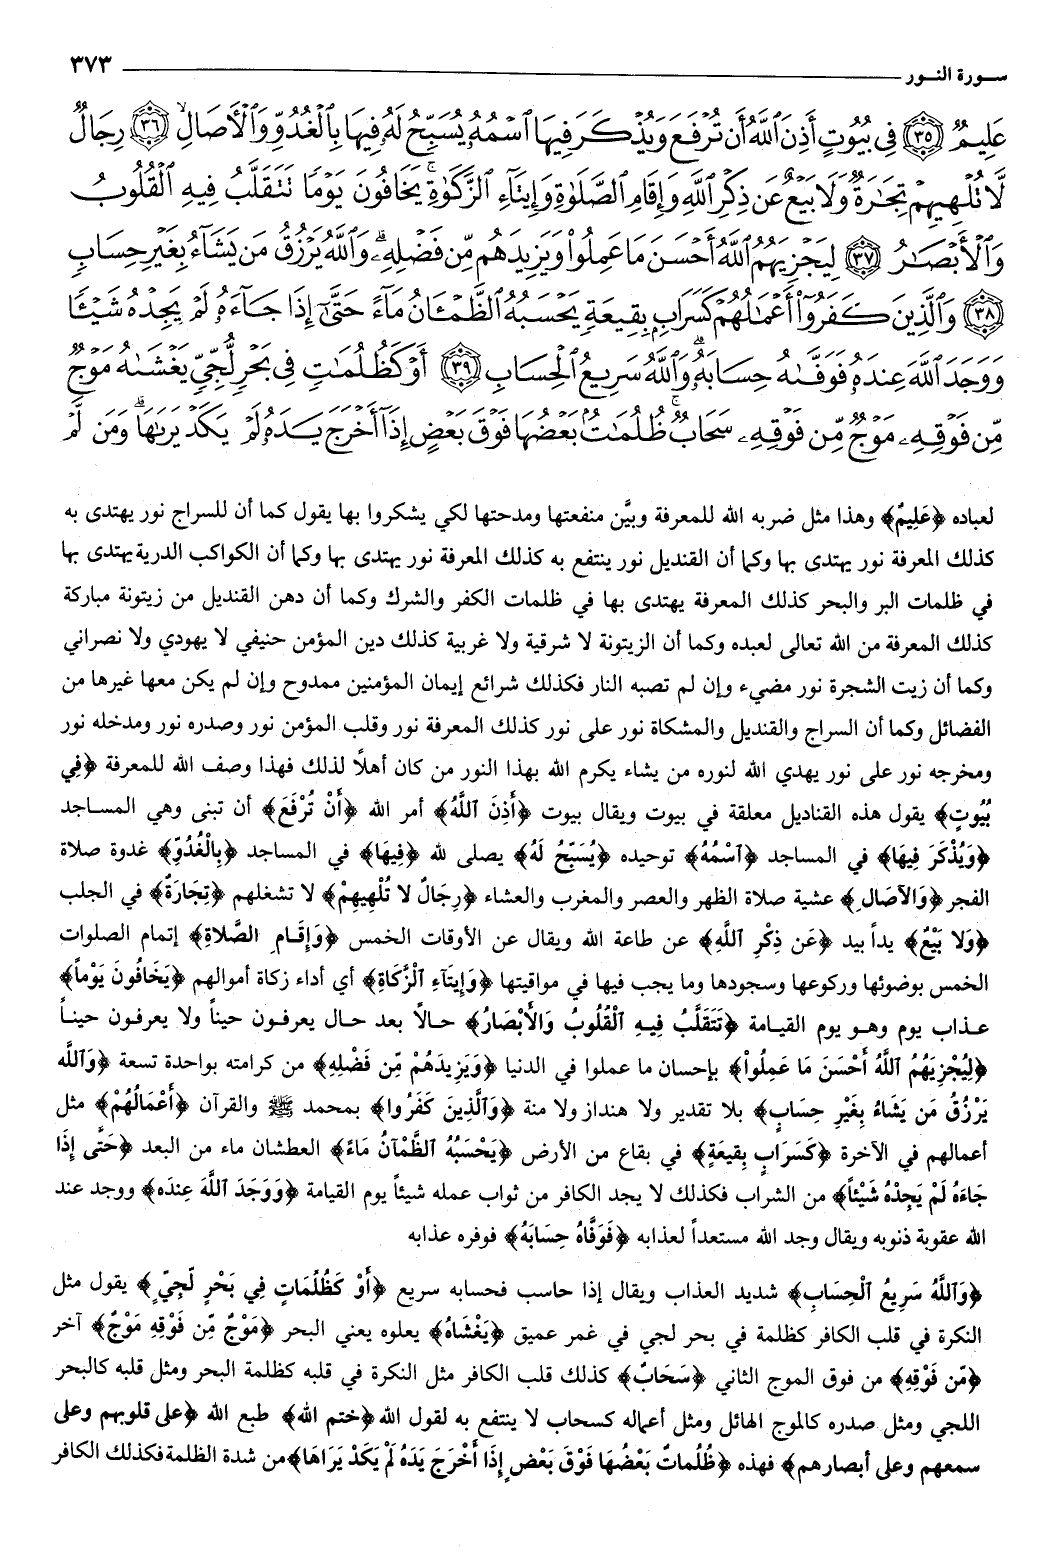 سورة النور ٣٧٣
عَلِيمٌ ﴿٣٥﴾ فِي بُيُوتٍ أَذِنَ ٱللَّهُ أَن تُرْفَعَ وَيُذْكَرَ فِيهَا ٱسْمُهُۥ يُسَبِّحُ لَهُۥ فِيهَا بِٱلْغُدُوِّ وَٱلْأَصَالِ ﴿٣٦﴾ رِجَالٌ
لَّا تُلْهِيهِمْ تِجَٰرَةٌ وَلَا بَيْعٌ عَن ذِكْرِ ٱللَّهِ وَإِقَامِ ٱلصَّلَوٰةِ وَإِيتَآءِ ٱلزَّكَوٰةِ ۙ يَخَافُونَ يَوْمًا تَتَقَلَّبُ فِيهِ ٱلْقُلُوبُ
وَٱلْأَبْصَٰرُ ﴿٣٧﴾ لِيَجْزِيَهُمُ ٱللَّهُ أَحْسَنَ مَا عَمِلُوا۟ وَيَزِيدَهُم مِّن فَضْلِهِۦ ۗ وَٱللَّهُ يَرْزُقُ مَن يَشَآءُ بِغَيْرِ حِسَابٍ
﴿٣٨﴾ وَٱلَّذِينَ كَفَرُوٓا۟ أَعْمَٰلُهُمْ كَسَرَابٍۭ بِقِيعَةٍ يَحْسَبُهُ ٱلظَّمْـَٔانُ مَآءً حَتَّىٰٓ إِذَا جَآءَهُۥ لَمْ يَجِدْهُ شَيْـًٔا
وَوَجَدَ ٱللَّهَ عِندَهُۥ فَوَفَّىٰهُ حِسَابَهُۥ ۗ وَٱللَّهُ سَرِيعُ ٱلْحِسَابِ ﴿٣٩﴾ أَوْ كَظُلُمَٰتٍ فِي بَحْرٍ لُّجِّيٍّ يَغْشَىٰهُ مَوْجٌ
مِّن فَوْقِهِۦ مَوْجٌ مِّن فَوْقِهِۦ سَحَابٌ ۚ ظُلُمَٰتٌۢ بَعْضُهَا فَوْقَ بَعْضٍ إِذَآ أَخْرَجَ يَدَهُۥ لَمْ يَكَدْ يَرَىٰهَا ۗ وَمَن لَّمْ
لعباده ﴿عَلِيمٌ﴾ وهذا مثل ضربه الله للمعرفة وبيَّن منفعتها ومدحتها لكي يشكروا بها يقول كما أن للسراج نور يهتدى به
كذلك المعرفة نور يهتدى بها وكما أن القنديل نور ينتفع به كذلك المعرفة نور يهتدى بها وكما أن الكواكب الدرية يهتدى بها
في ظلمات البر والبحر كذلك المعرفة يهتدى بها في ظلمات الكفر والشرك وكما أن دهن القنديل من زيتونة مباركة
كذلك المعرفة من الله تعالى لعبده وكما أن الزيتونة لا شرقية ولا غربية كذلك دين المؤمن حنيفي لا يهودي ولا نصراني
وكما أن زيت الشجرة نور مضيء وإن لم تصبه النار فكذلك شرائع إيمان المؤمنين ممدوح وإن لم يكن معها غيرها من
الفضائل وكما أن السراج والقنديل والمشكاة نور على نور كذلك المعرفة نور وقلب المؤمن نور وصدره نور ومدخله نور
ومخرجه نور على نور يهدي الله لنوره من يشاء يكرم الله بهذا النور من كان أهلاً لذلك فهذا وصف الله للمعرفة ﴿فِي
بُيُوتٍ﴾ يقول هذه القناديل معلقة في بيوت ويقال بيوت ﴿أَذِنَ ٱللَّهُ﴾ أمر الله ﴿أَنْ تُرْفَعَ﴾ أن تبنى وهي المساجد
﴿وَيُذْكَرَ فِيهَا﴾ في المساجد ﴿ٱسْمُهُ﴾ توحيده ﴿يُسَبِّحُ لَهُ﴾ يصلى لله ﴿فِيهَا﴾ في المساجد ﴿بِالْغُدُوِّ﴾ غدوة صلاة
الفجر ﴿وَالآصَالِ﴾ عشية صلاة الظهر والعصر والمغرب والعشاء ﴿رِجَالٌ لا تُلْهِيهِمْ﴾ لا تشغلهم ﴿تِجَارَةٌ﴾ في الجلب
﴿وَلا بَيْعٌ﴾ يداً بيد ﴿عَن ذِكْرِ ٱللَّهِ﴾ عن طاعة الله ويقال عن الأوقات الخمس ﴿وَإِقَامِ الصَّلاةِ﴾ إتمام الصلوات
الخمس بوضوئها وركوعها وسجودها وما يجب فيها في مواقيتها ﴿وَإِيتَاءِ ٱلزَّكَاةِ﴾ أي أداء زكاة أموالهم ﴿يَخَافُونَ يَوْماً﴾
عذاب يوم وهو يوم القيامة ﴿تَتَقَلَّبُ فِيهِ ٱلْقُلُوبُ وَالأَبْصَارُ﴾ حالاً بعد حال يعرفون حيناً ولا يعرفون حيناً
﴿لِيَجْزِيَهُمُ ٱللَّهُ أَحْسَنَ مَا عَمِلُواْ﴾ بإحسان ما عملوا في الدنيا ﴿وَيَزِيدَهُمْ مِّن فَضْلِهِ﴾ من كرامته بواحدة تسعة ﴿وَٱللَّه
يَرْزُقُ مَن يَشَاءُ بِغَيْرِ حِسَابٍ﴾ بلا تقدير ولا هنداز ولا منة ﴿وَٱلَّذِينَ كَفَرُوا﴾ بمحمد ﷺ والقرآن ﴿أَعْمَالُهُمْ﴾ مثل
أعمالهم في الآخرة ﴿كَسَرَابٍ بِقِيعَةٍ﴾ في بقاع من الأرض ﴿يَحْسَبُهُ ٱلظَّمْآنُ مَاءً﴾ العطشان ماء من البعد ﴿حَتَّى إِذَا
جَاءَهُ لَمْ يَجِدْهُ شَيْئاً﴾ من الشراب فكذلك لا يجد الكافر من ثواب عمله شيئاً يوم القيامة ﴿وَوَجَدَ ٱللَّهَ عِندَه﴾ ووجد عند
الله عقوبة ذنوبه ويقال وجد الله مستعداً لعذابه ﴿فَوَفَّاهُ حِسَابَهُ﴾ فوفره عذابه
﴿وَٱللَّهُ سَرِيعُ ٱلْحِسَابِ﴾ شديد العذاب ويقال إذا حاسب فحسابه سريع ﴿أَوْ كَظُلُمَاتٍ فِي بَحْرٍ لُّجِّيٍّ﴾ يقول مثل
النكرة في قلب الكافر كظلمة في بحر لجي في غمر عميق ﴿يَغْشَاهُ﴾ يعلوه يعني البحر ﴿مَوْجٌ مِّن فَوْقِهِ مَوْجٌ﴾ آخر
﴿مِّن فَوْقِهِ﴾ من فوق الموج الثاني ﴿سَحَابٌ﴾ كذلك قلب الكافر مثل النكرة في قلبه كظلمة البحر ومثل قلبه كالبحر
اللجي ومثل صدره كالموج الهائل ومثل أعماله كسحاب لا ينتفع به لقول الله ﴿ختم الله﴾ طبع الله ﴿على قلوبهم وعلى
سمعهم وعلى أبصارهم﴾ فهذه ﴿ظُلُمَاتٌ بَعْضُهَا فَوْقَ بَعْضٍ إِذَا أَخْرَجَ يَدَهُ لَمْ يَكَدْ يَرَاهَا﴾ من شدة الظلمة فكذلك الكافر